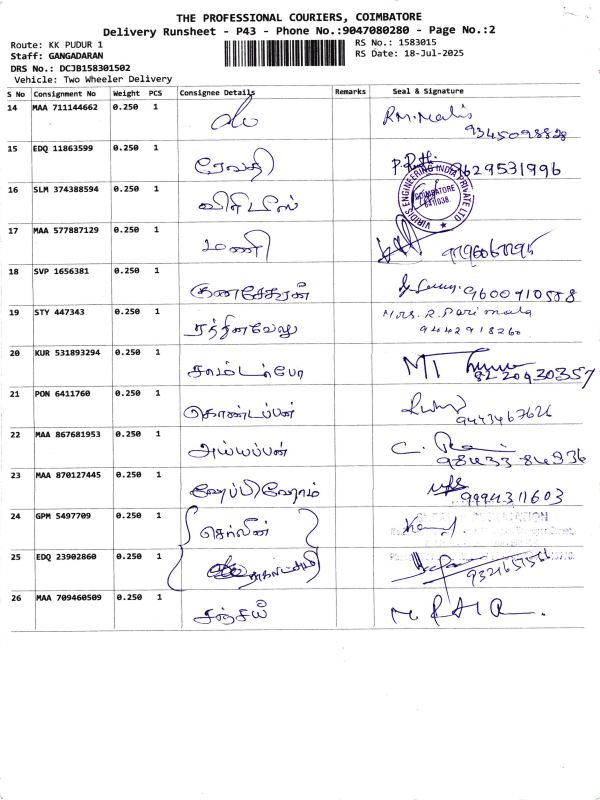 THE PROFESSIONAL COURIERS, COIMBATORE
Delivery Runsheet - P43 - Phone No.:9047080280 - Page No.:2
Route: KK PUDUR 1
RS No.: 1583015
Staff: GANGADARAN
RS Date: 18-Jul-2025
DRS No.: DCJB158301502
Vehicle: Two Wheeler Delivery
S No Consignment No Weight PCS Consignee Details Remarks Seal & Signature
14 MAA 711144662 0.250 1
9345098828
15 EDQ 11863599 0.250 1 ரேவதி 9629531996
VIRIDIS ENGINEERING INDIA PRIVATE LTD
COIMBATORE
641 038
16 SLM 374388594 0.250 1
17 MAA 577887129 0.250 1 மணி
18 SVP 1656381 0.250 1 குணசேகரன் 9600910588
19 STY 447343 0.250 1 ரத்தினவேலு Mrs. R. Parimala
9442918260
20 KUR 531893294 0.250 1
8220930357
21 PON 6411760 0.250 1 கொண்டப்பன்
9443467626
22 MAA 867681953 0.250 1 அய்யப்பன்
9843384936
23 MAA 870127445 0.250 1 ஹேப்பிஹோம் 9994311603
24 GPM 5497709 0.250 1 செர்லின்
25 EDQ 23902860 0.250 1
9321651566
26 MAA 709460509 0.250 1 சஞ்சய்